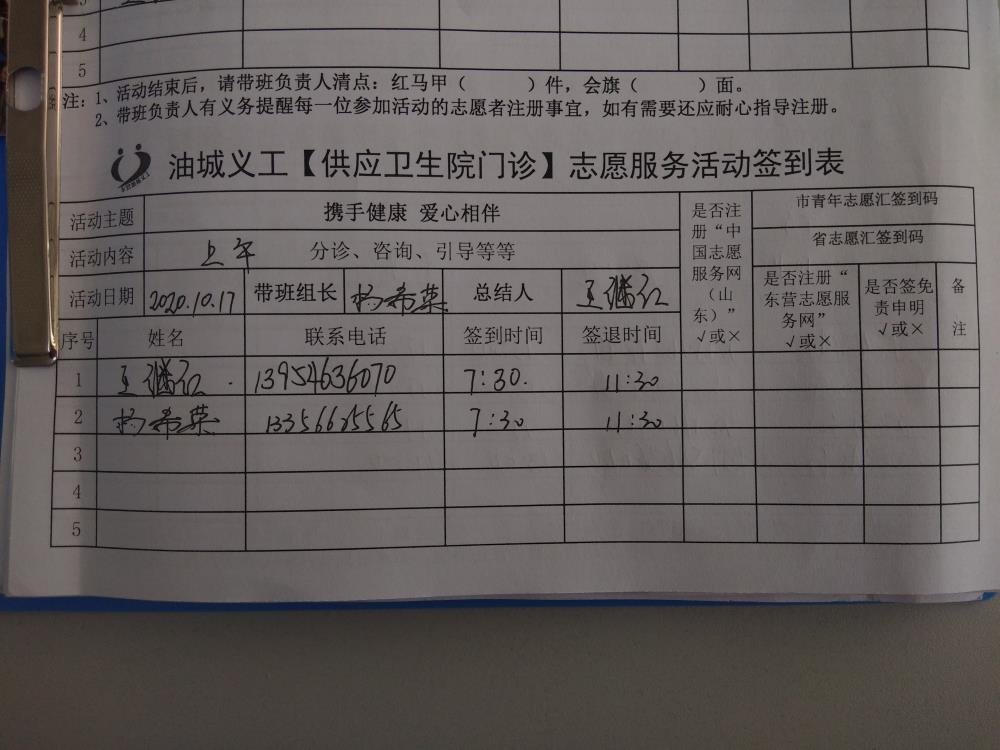 4
5
注：1、活动结束后，请带班负责人清点：红马甲（ ）件，会旗（ ）面。
2、带班负责人有义务提醒每一位参加活动的志愿者注册事宜，如有需要还应耐心指导注册。
油城义工【供应卫生院门诊】志愿服务活动签到表
活动主题 携手健康 爱心相伴 是否注册“中国志愿服务网（山东）”√或× 市青年志愿汇签到码
活动内容 上午 分诊、咨询、引导等等 省志愿汇签到码
活动日期 2020.10.17 带班组长 杨希荣 总结人 王继红 是否注册“东营志愿服务网”√或× 是否签免责申明√或× 备注
序号 姓名 联系电话 签到时间 签退时间
1 王继红 13954636070 7:30. 11:30
2 杨希荣 13356625565 7:30 11:30
3
4
5